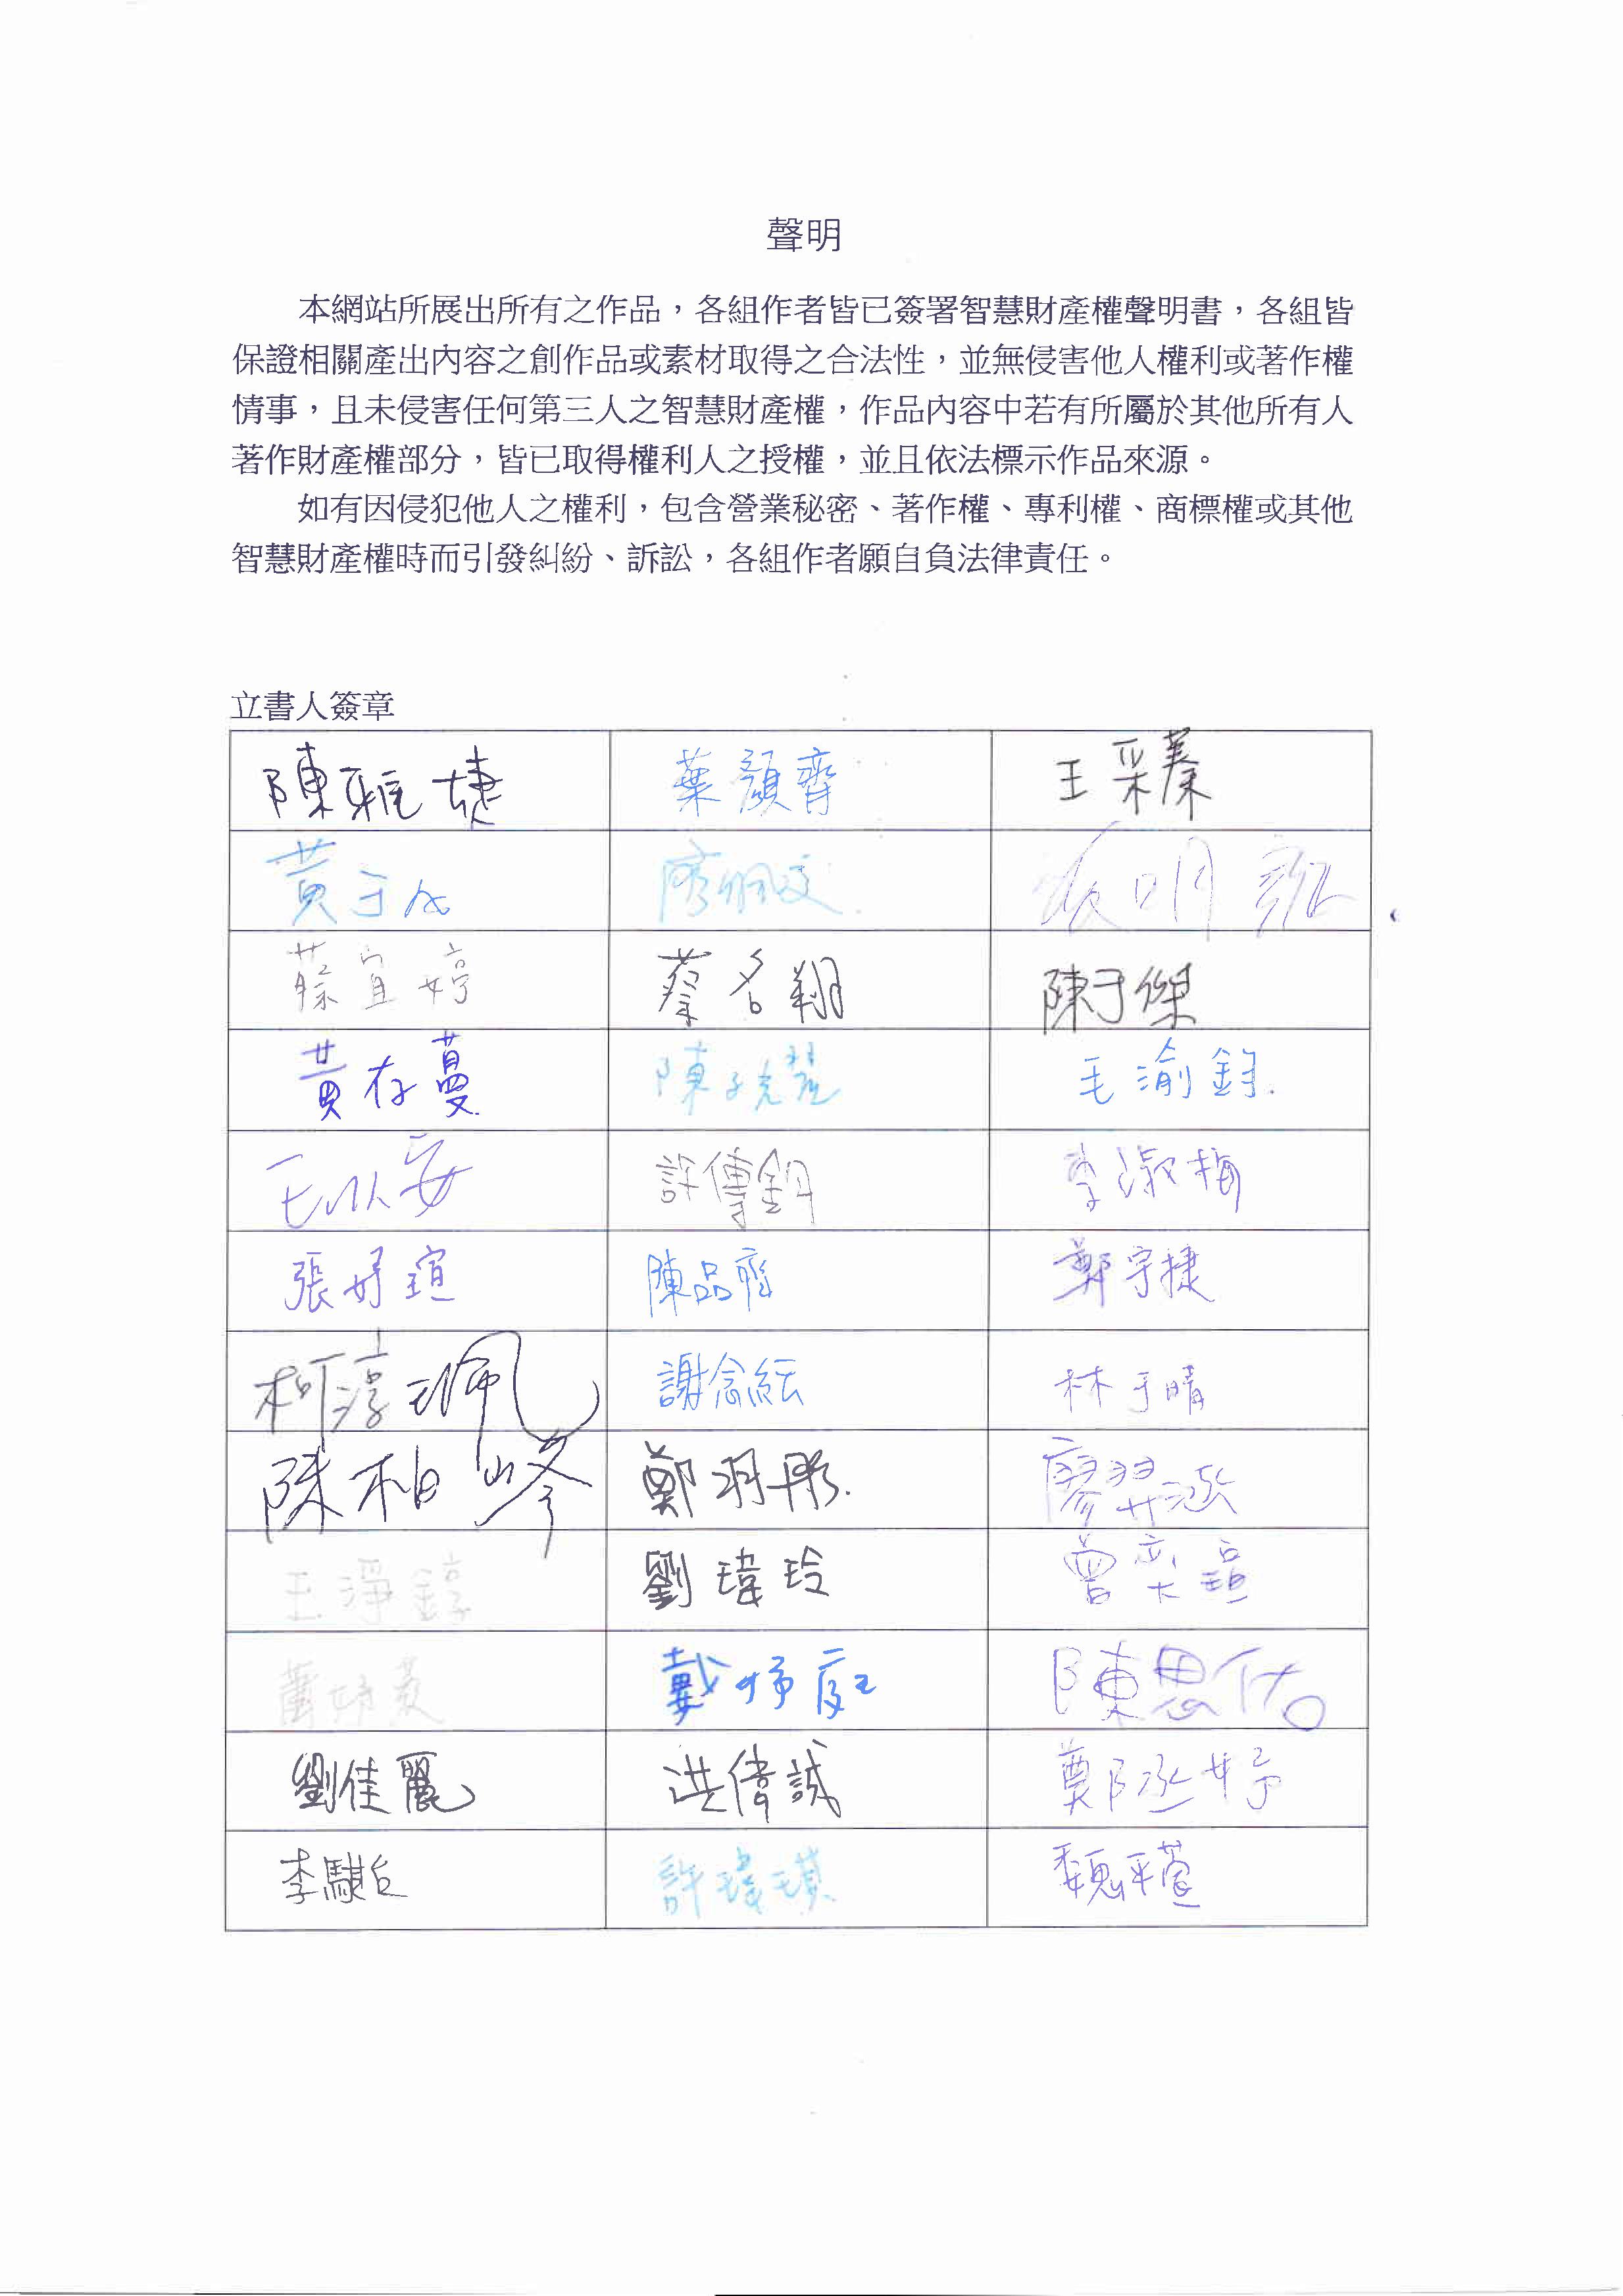 聲明
本網站所展出所有之作品，各組作者皆已簽署智慧財產權聲明書，各組皆
保證相關產出內容之創作品或素材取得之合法性，並無侵害他人權利或著作權
情事，且未侵害任何第三人之智慧財產權，作品內容中若有所屬於其他所有人
著作財產權部分，皆已取得權利人之授權，並且依法標示作品來源。
如有因侵犯他人之權利，包含營業秘密、著作權、專利權、商標權或其他
智慧財產權時而引發糾紛、訴訟，各組作者願自負法律責任。
立書人簽章
陳雅婕 葉顏齊 王采蓁
黃于 廖珮文 明
蔡宜婷 蔡名翔 陳于傑
黃存蔓 陳 毛渝鈞.
王以安 許傳鈅 李淑梅
張妤瑄 陳品齊 鄭宇捷
柯淳珮 謝念紜 林于晴
陳柏峯 鄭羽彤. 廖羿涵
王淨錞 劉瑋玲 曾奕瑄
蕭 戴 庭 陳思佑
劉佳麗 洪偉誠 鄭丞妤
李騏 許瑋 魏采萱